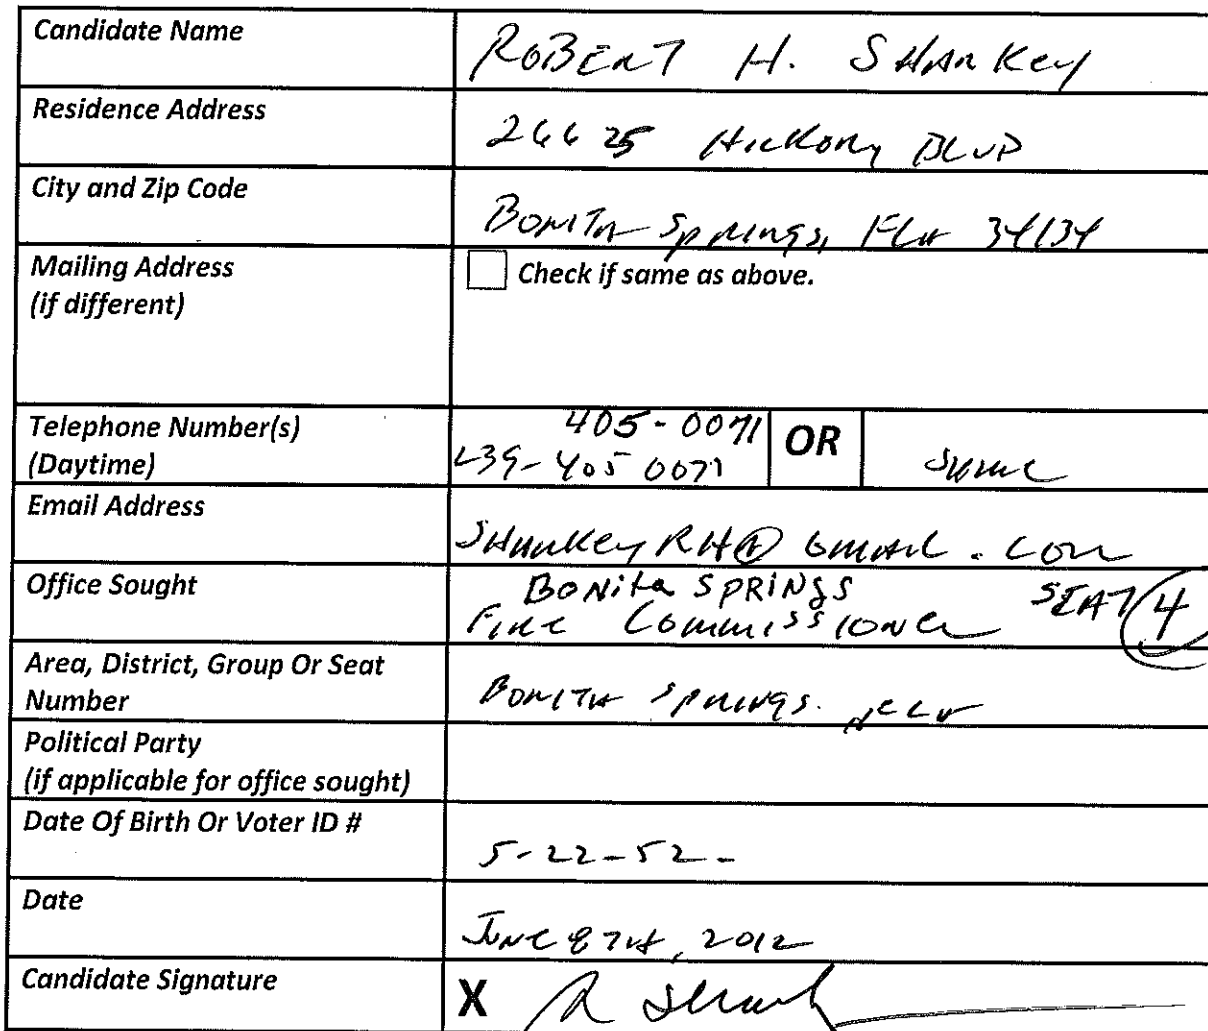 Candidate Name ROBERT H. SHARKEY
Residence Address 26625 Hickory BLVD
City and Zip Code BONITA Springs, FLA 34134
Mailing Address
(if different)
Check if same as above.
Telephone Number(s)
(Daytime)
405-0071
239-405 0071
OR
same
Email Address SHARKEYRH@GMAIL.COM
Office Sought
BONITA SPRINGS
Fire Commissioner SEAT 4
Area, District, Group Or Seat
Number
BONITA SPRINGS.
Political Party
(if applicable for office sought)
Date Of Birth Or Voter ID # 5-22-52-
Date JUNE 8TH, 2012
Candidate Signature X